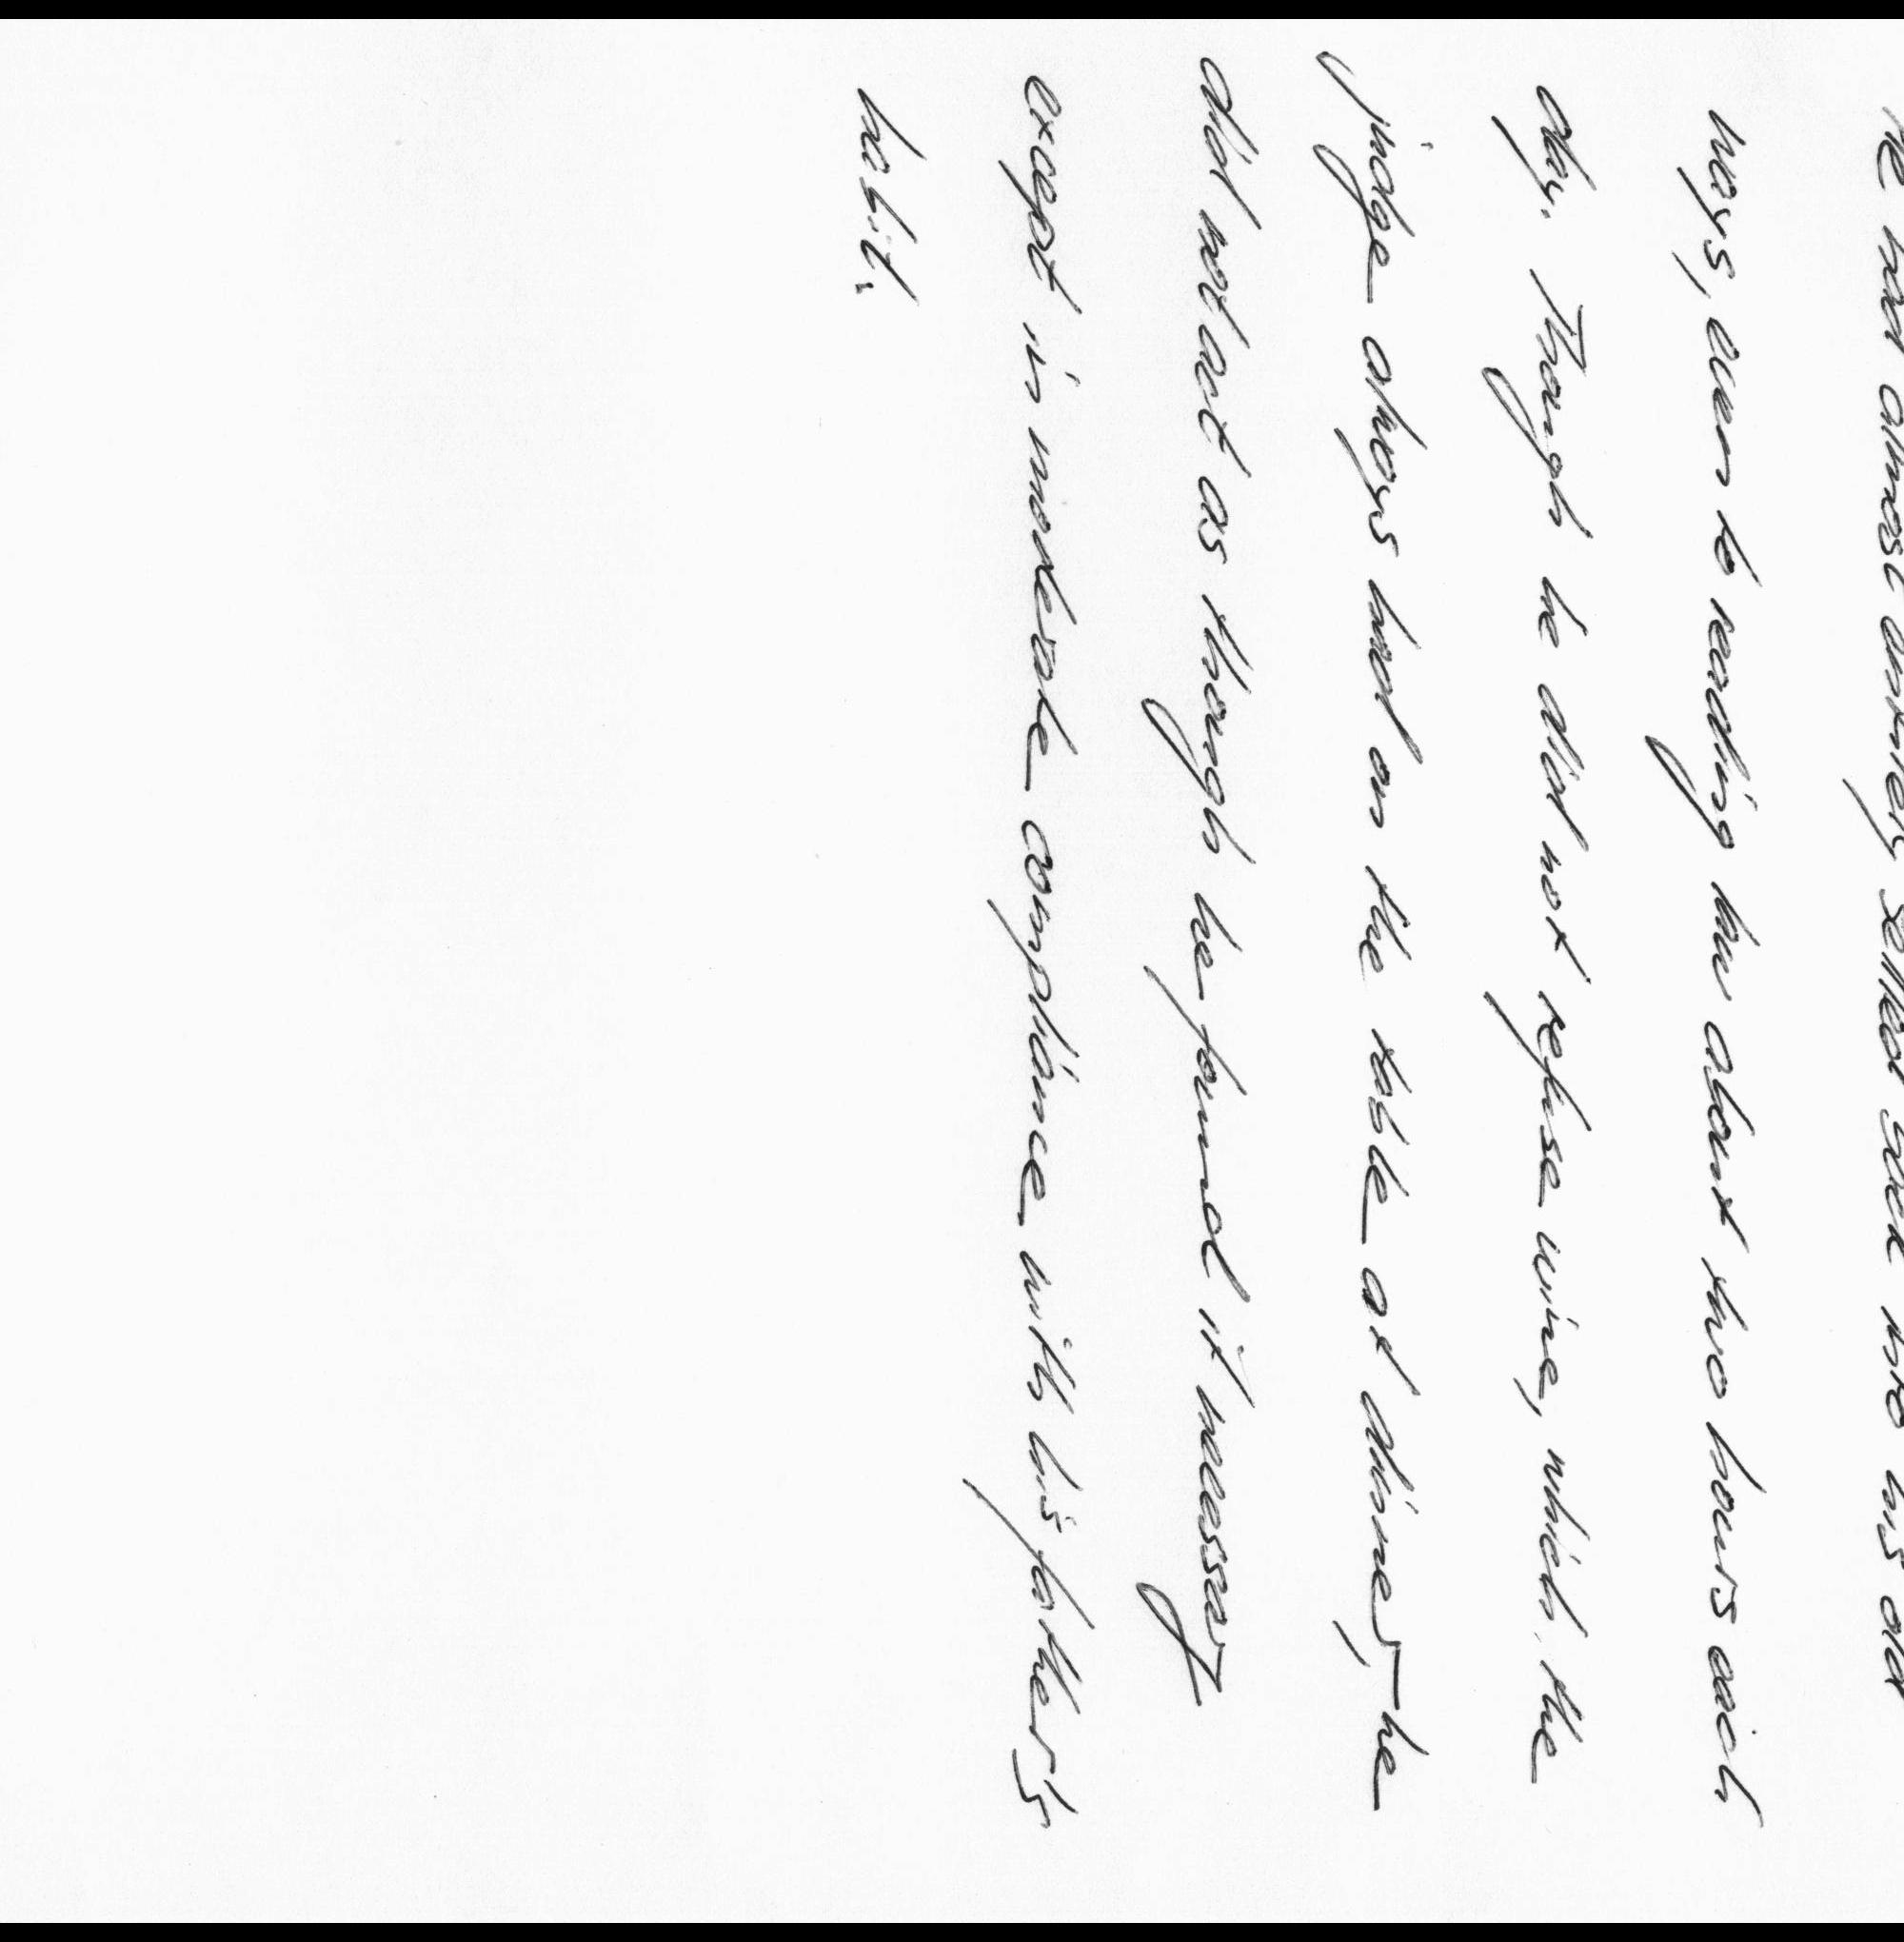 he had almost entirely settled back into his old
ways, even to reading law about two hours each
day. Though he did not refuse wine, which the
judge always had on the table at dinner, he
did not act as though he found it necessary
except in moderate compliance with his father's
habit.